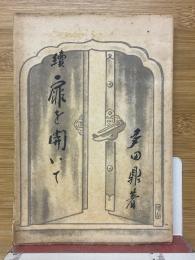 續
扉を開いて
多田鼎著